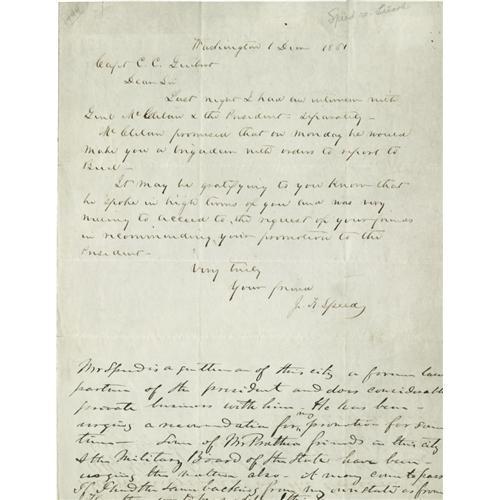 Speed re Gilbert
Washington 1 Dem 1861
Capt C. C. Gilbert
Dear Sir
Last night I had an interview with
Genl McClelan & the President - separately -
McClelan promised that on monday he would
make you a brigadier with orders to report to
Buel -
It may be gratifying to you know that
he spoke in high terms of you and was very
willing to acceed to the request of your friends
in recommending your promotion to the
President -
Very truly
Your friend
J. F. Speed
Mr Speed is a gentleman of this city a former law
partner of the president and does considerable
private business with him. He has been
urging a recommendation for my promotion for some
time - Some of Mr friends in this city
& the Military Board of the State have been
urging the matter also. It may come to pass
If I had the same backing from my own state